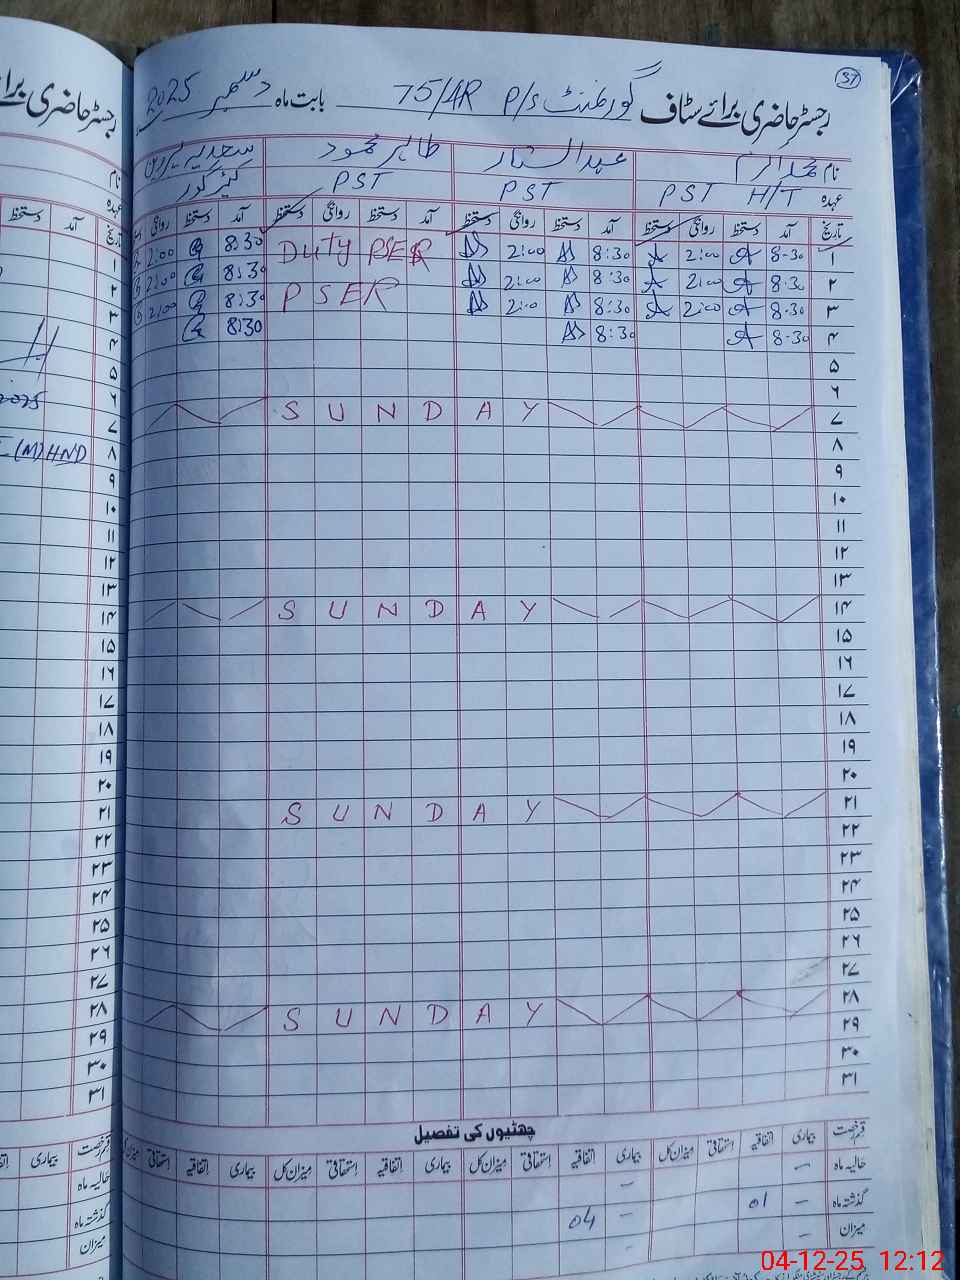 37
رجسٹر حاضری برائے سٹاف گورنمنٹ P/S 75/4R بابت ماہ دسمبر 2025
نام عبدالستار طاہر محمود سعدیہ
عہدہ PST H/T PST PST
تاریخ آمد دستخط روانگی دستخط آمد دستخط روانگی دستخط آمد دستخط روانگی دستخط آمد دستخط روانگی
۱ 8-30 2:00 8:30 2:00 Duty PSER 8:30 2:00
۲ 8-30 2:00 8:30 2:00 8:30 2:00
۳ 8-30 2:00 8:30 2:00 PSER 8:30 2:00
۴ 8-30 8:30 8:30
۵
۶
۷ SUNDAY
۸
۹
۱۰
۱۱
۱۲
۱۳
۱۴ SUNDAY
۱۵
۱۶
۱۷
۱۸
۱۹
۲۰
۲۱ SUNDAY
۲۲
۲۳
۲۴
۲۵
۲۶
۲۷
۲۸ SUNDAY
۲۹
۳۰
۳۱
چھٹیوں کی تفصیل
قسم رخصت بیماری اتفاقیہ استحقاقی میزان کل بیماری اتفاقیہ استحقاقی میزان کل بیماری اتفاقیہ استحقاقی میزان کل بیماری اتفاقیہ استحقاقی
حالیہ ماہ – –
گذشتہ ماہ – 01 – 04
میزان – –
رجسٹر حاضری برائے
نام
عہدہ
تاریخ آمد دستخط
۱
۲
۳
۴
۵
۶ 2025
۷
۸ (M) HND
۹
۱۰
۱۱
۱۲
۱۳
۱۴
۱۵
۱۶
۱۷
۱۸
۱۹
۲۰
۲۱
۲۲
۲۳
۲۴
۲۵
۲۶
۲۷
۲۸
۲۹
۳۰
۳۱
قسم رخصت بیماری
حالیہ ماہ
گذشتہ ماہ
میزان
04-12-25 12:12